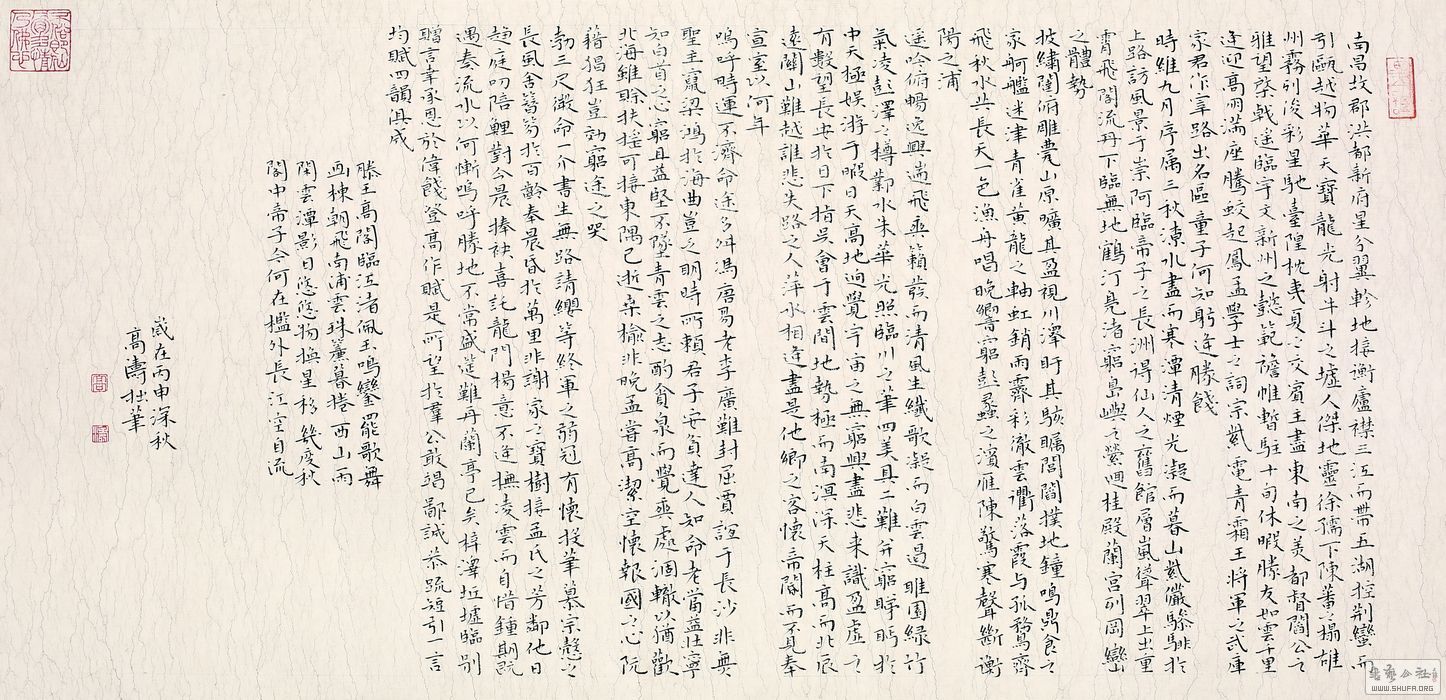 南昌故郡洪都新府星分翼軫地接衡廬襟三江而帶五湖控荆蠻而
引甌越物華天寶龍光射牛斗之墟人傑地靈徐孺下陳蕃之榻雄
州霧列俊彩星馳臺隍枕夷夏之交賓主盡東南之美都督閻公之
雅望棨戟遥臨宇文新州之懿範襜帷暫駐十旬休暇勝友如雲千里
逢迎高朋滿座騰蛟起鳳孟學士之詞宗紫電青霜王將軍之武庫
家君作宰路出名區童子何知躬逢勝餞
時維九月序属三秋潦水盡而寒潭清煙光凝而暮山紫儼驂騑於
上路訪風景于崇阿臨帝子之長洲得仙人之舊館層嵐聳翠上出重
霄飛閣流丹下臨無地鶴汀凫渚窮島嶼之縈迴桂殿蘭宫列岡巒
之體勢
披繡闥俯雕甍山原曠其盈視川澤盱其駭矚閭閻撲地鐘鳴鼎食之
家舸艦迷津青雀黄龍之軸虹銷雨霽彩徹雲衢落霞与孤鶩齊
飛秋水共長天一色漁舟唱晚響窮彭蠡之濱雁陳驚寒聲斷衡
陽之浦
遥吟俯暢逸興遄飛爽籟發而清風生纖歌凝而白雲遏睢園緑竹
氣凌彭澤之樽鄴水朱華光照臨川之筆四美具二難并窮睇眄於
中天極娱游于暇日天高地迥覺宇宙之無窮興盡悲来識盈虚之
有數望長安於日下指吴會于雲間地勢極而南溟深天柱高而北辰
遠關山難越誰悲失路之人萍水相逢盡是他鄉之客懷帝閽而不見奉
宣室以何年
嗚呼時運不濟命途多舛馮唐易老李廣難封屈賈誼于長沙非無
聖主竄梁鴻於海曲豈乏明時所賴君子安貧達人知命老當益壯寧
知白首之心窮且益堅不墜青雲之志酌貪泉而覺爽處涸轍以猶歡
北海雖賒扶摇可接東隅已逝桑榆非晚孟嘗高潔空懷報國之心阮
籍猖狂豈効窮途之哭
勃三尺微命一介書生無路請纓等終軍之弱冠有懷投筆慕宗慤之
長風舍簪笏於百齡奉晨昏於萬里非謝家之寶樹接孟氏之芳鄰他日
趨庭叨陪鯉對今晨捧袂喜託龍門楊意不逢撫凌雲而自惜鍾期既
遇奏流水以何慚嗚呼勝地不常盛筵難再蘭亭已矣梓澤丘墟臨别
贈言幸承恩於偉餞登高作賦是所望於羣公敢竭鄙誠恭疏短引一言
均賦四韻俱成
滕王高閣臨江渚佩玉鳴鑾罷歌舞
画棟朝飛南浦雲珠簾暮捲西山雨
閑雲潭影日悠悠物换星移幾度秋
閣中帝子今何在檻外長江空自流
歲在丙申深秋
高濤拙筆
WWW.SHUFA.ORG